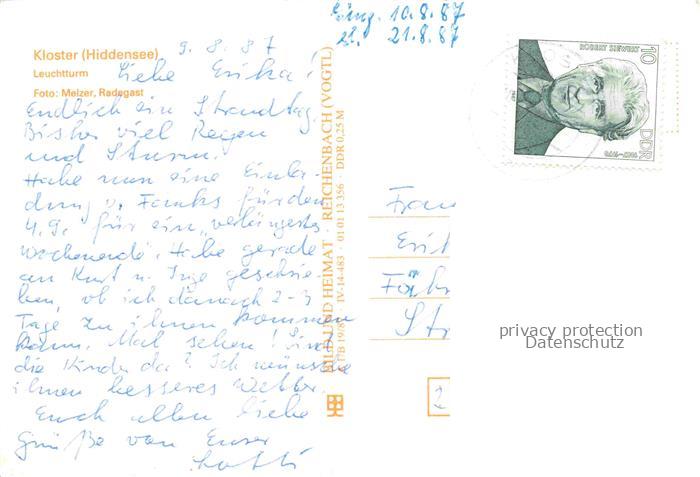 Eing. 10.8.87
21.8.87
Kloster (Hiddensee) 9.8.87
Leuchtturm Liebe Erika!
Foto: Melzer, Radegast
Endlich ein Strandtag.
Bisher viel Regen
und Sturm.
Habe nun eine Einla-
dung v. Funks für den
4.9. für ein "verlängertes
Wochenende". Habe gerade
an Kurt u. Inge geschrie-
ben, ob ich danach 2-3
Tage zu ihnen kommen
kann. Mal sehen! Sind
die Kinder da? Ich wünsche
ihnen besseres Wetter.
Euch allen liebe
Grüße von Eurer
Lotti
BILD UND HEIMAT REICHENBACH (VOGTL)
IV-14-483 · 01 01 13 356 · DDR 0,25 M
ROBERT SIEWERT
10
DDR
1887–1973
Frau
Eri
Str
2
privacy protection
Datenschutz